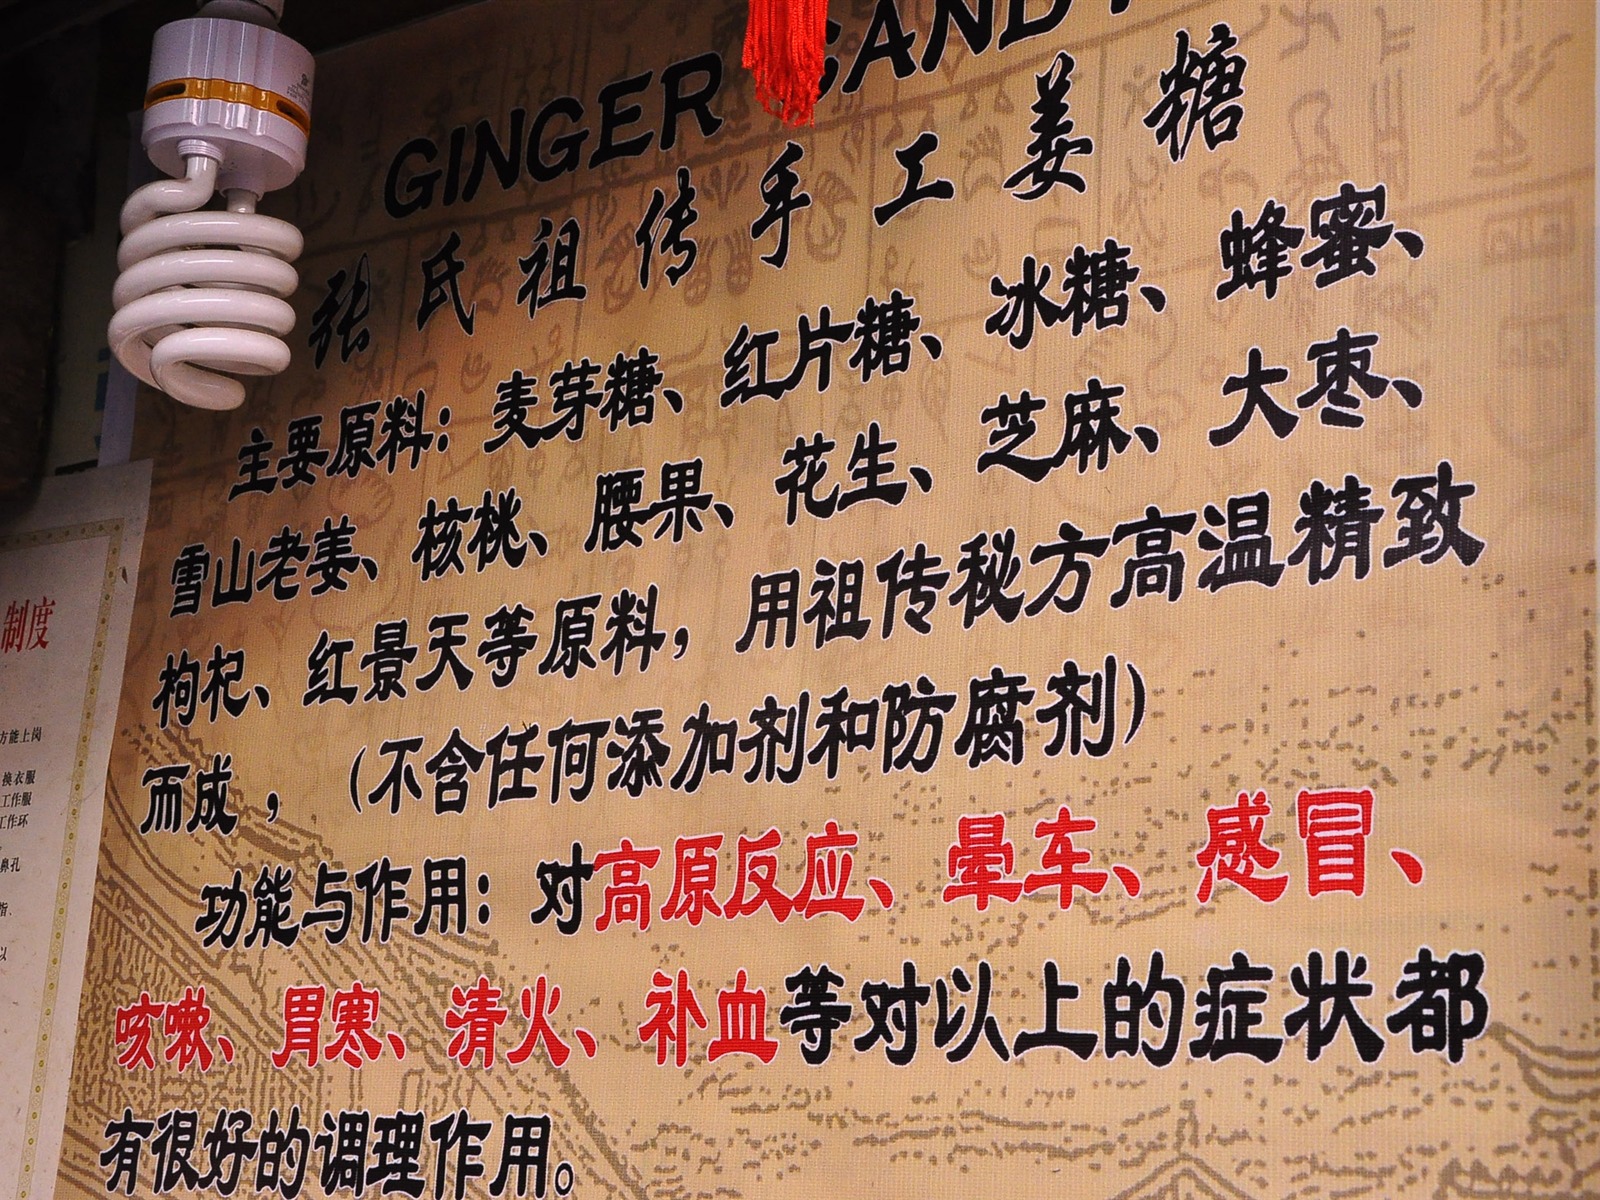 GINGER CANDY
张氏祖传手工姜糖
主要原料：麦芽糖、红片糖、冰糖、蜂蜜、
雪山老姜、核桃、腰果、花生、芝麻、大枣、
枸杞、红景天等原料，用祖传秘方高温精致
而成，（不含任何添加剂和防腐剂）
功能与作用：对高原反应、晕车、感冒、
咳嗽、胃寒、清火、补血等对以上的症状都
有很好的调理作用。
制度
方能上岗
换衣服
工作服
工作环
鼻孔
指、
以